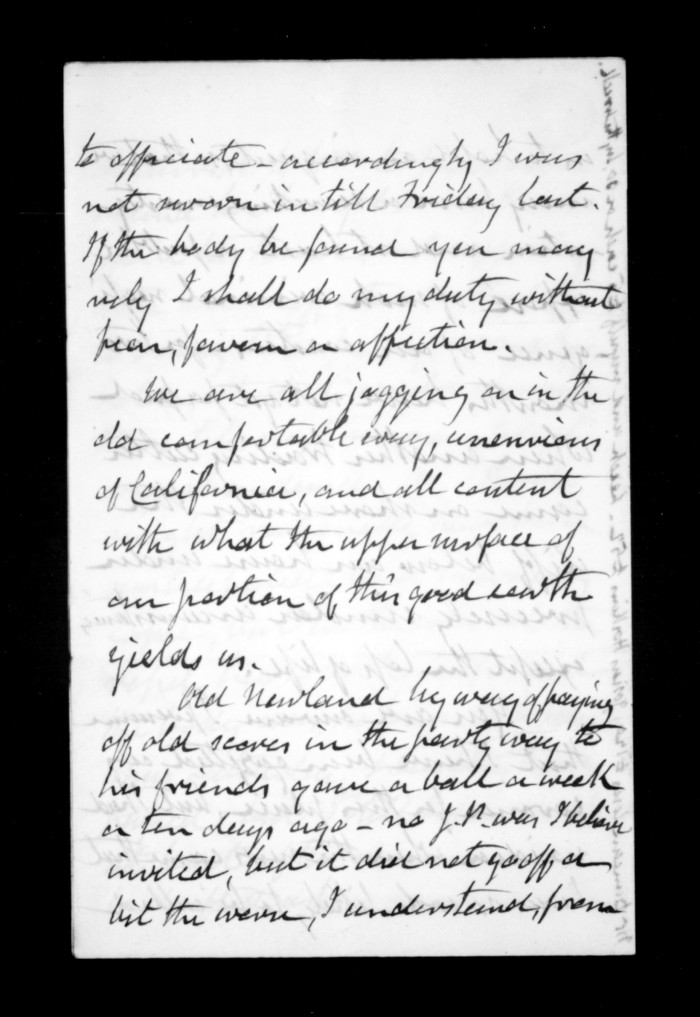 to officiate - accordingly I was
not sworn in till Friday last.
If the body be found you may
rely I shall do my duty without
fear, favour or affection.
We are all jogging on in the
old comfortable way, unenvious
of California, and all content
with what the upper surface of
our portion of this good earth
yields us.
Old Newland by way of paying
off old scores in the party way to
his friends gave a ball a week
or ten days ago - no J.P. was I believe
invited, but it did not go off a
bit the worse, I understand, from